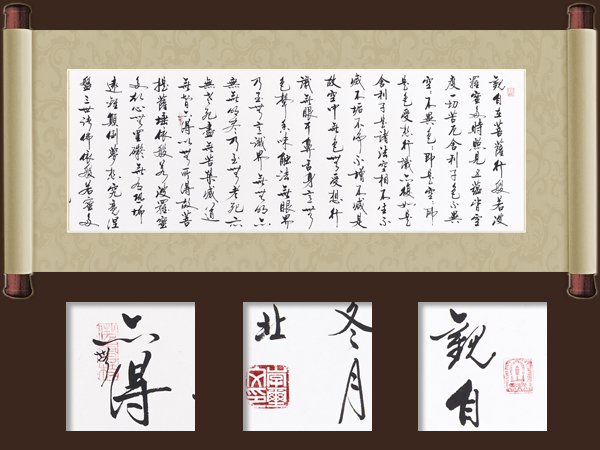 觀自在菩薩行般若波
羅蜜多時照見五蘊皆空
度一切苦厄舍利子色不異
空〻不異色〻即是空〻即
是色受想行識亦復如是
舍利子是諸法空相不生不
滅不垢不淨不增不減是
故空中無色無受想行
識無眼耳鼻舌身意無
色聲香味觸法無眼界
乃至無意識界無無明亦
無無明盡乃至無老死亦
無老死盡無苦集滅道
無智亦得以無所得故菩
提薩埵依般若波羅蜜
多故心無罣礙無有恐怖
遠離顛倒夢想究竟涅
槃三世諸佛依般若蜜多
亦得
冬月
北
觀自